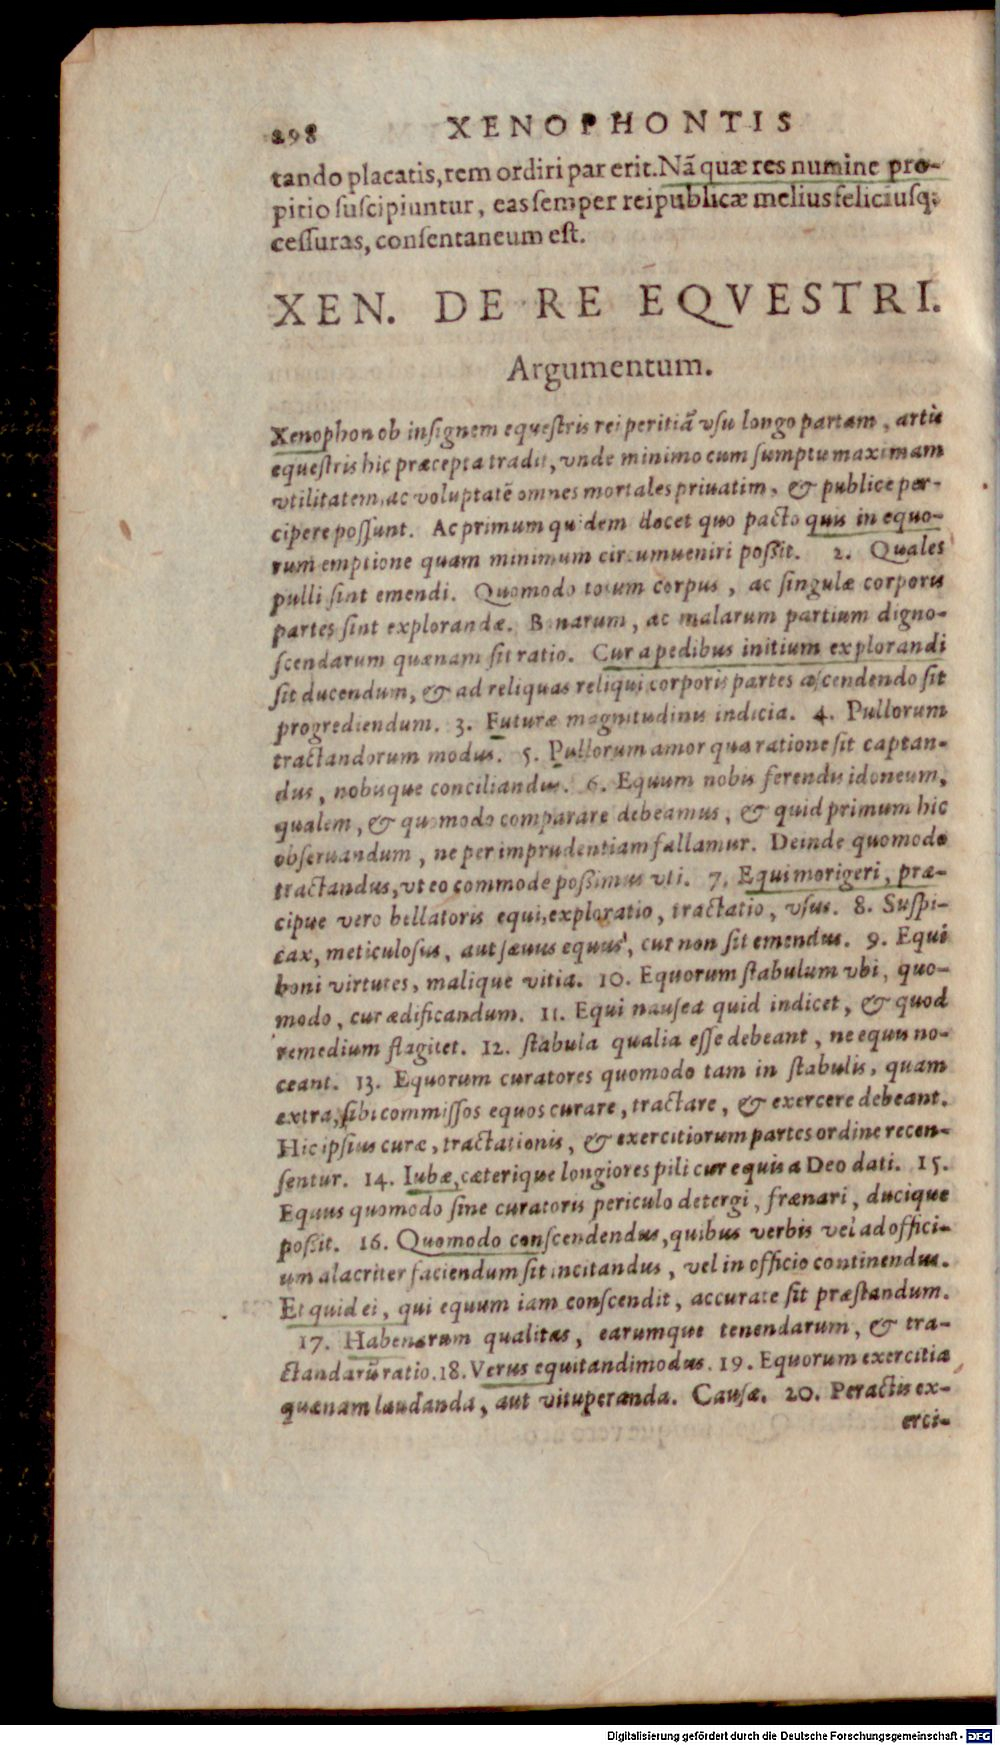 298 XENOPHONTIS
tando placatis, rem ordiri par erit. Nã quæ res numine pro-
pitio ſuſcipiuntur, eas ſemper reipublicæ melius feliciuſq;
ceſſuras, conſentaneum eſt.
XEN. DE RE EQVESTRI.
Argumentum.
Xenophon ob inſignem equeſtris rei peritiã vſu longo partam, artis
equeſtris hic præcepta tradit, vnde minimo cum ſumptu maximam
vtilitatem, ac voluptatẽ omnes mortales priuatim, & publice per-
cipere poſſunt. Ac primum quidem docet quo pacto quis in equo-
rum emptione quam minimum circumueniri poſſit. 2. Quales
pulli ſint emendi. Quomodo totum corpus, ac ſingulæ corporis
partes ſint explorandæ. Bonarum, ac malarum partium digno-
ſcendarum quænam ſit ratio. Cur a pedibus initium explorandi
ſit ducendum, & ad reliquas reliqui corporis partes aſcendendo ſit
progrediendum. 3. Futuræ magnitudinis indicia. 4. Pullorum
tractandorum modus. 5. Pullorum amor qua ratione ſit captan-
dus, nobisque conciliandus. 6. Equum nobis ferendis idoneum,
qualem, & quomodo comparare debeamus, & quid primum hic
obſeruandum, ne per imprudentiam fallamur. Deinde quomodo
tractandus, vt eo commode poſſimus vti. 7. Equi morigeri, præ-
cipue vero bellatoris equi, exploratio, tractatio, vſus. 8. Suſpi-
cax, meticuloſus, aut ſæuus equus, cur non ſit emendus. 9. Equi
boni virtutes, malique vitia. 10. Equorum ſtabulum vbi, quo-
modo, cur ædificandum. 11. Equi nauſea quid indicet, & quod
remedium flagitet. 12. ſtabula qualia eſſe debeant, ne equis no-
ceant. 13. Equorum curatores quomodo tam in ſtabulis, quam
extra, ſibi commiſſos equos curare, tractare, & exercere debeant.
Hic ipſius curæ, tractationis, & exercitiorum partes ordine recen-
ſentur. 14. Iubæ, cæterique longiores pili cur equis a Deo dati. 15.
Equus quomodo ſine curatoris periculo detergi, frænari, ducique
poſſit. 16. Quomodo conſcendendus, quibus verbis vel ad offici-
um alacriter faciendum ſit incitandus, vel in officio continendus.
Et quid ei, qui equum iam conſcendit, accurate ſit præſtandum.
17. Habenarum qualitas, earumque tenendarum, & tra-
ctandarũ ratio. 18. Verus equitandi modus. 19. Equorum exercitia
quænam laudanda, aut vituperanda. Cauſæ. 20. Peractis ex-
erci-
Digitalisierung gefördert durch die Deutsche Forschungsgemeinschaft - DFG